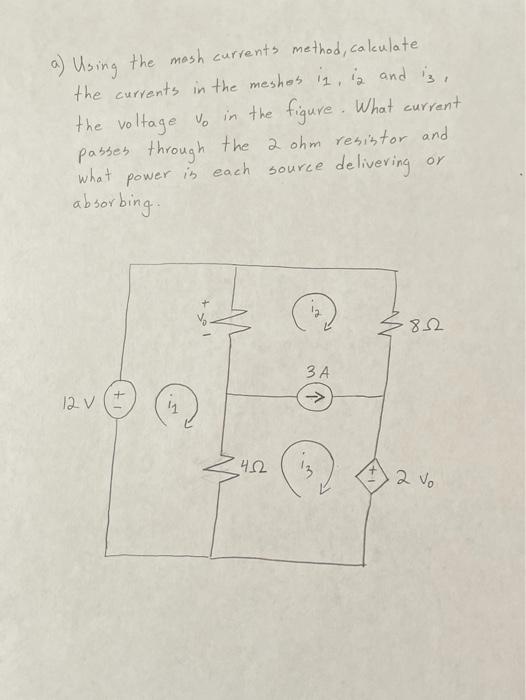 a) Using the mesh currents method, calculate
the currents in the meshes i1, i2 and i3,
the voltage Vo in the figure. What current
passes through the 2 ohm resistor and
what power is each source delivering or
absorbing.
+
Vo
−
i2
8Ω
3 A
→
12 V
+
−
i1
4Ω
i3
+
−
2 Vo